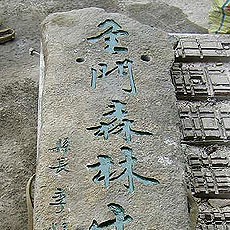 金門森林
縣長 李